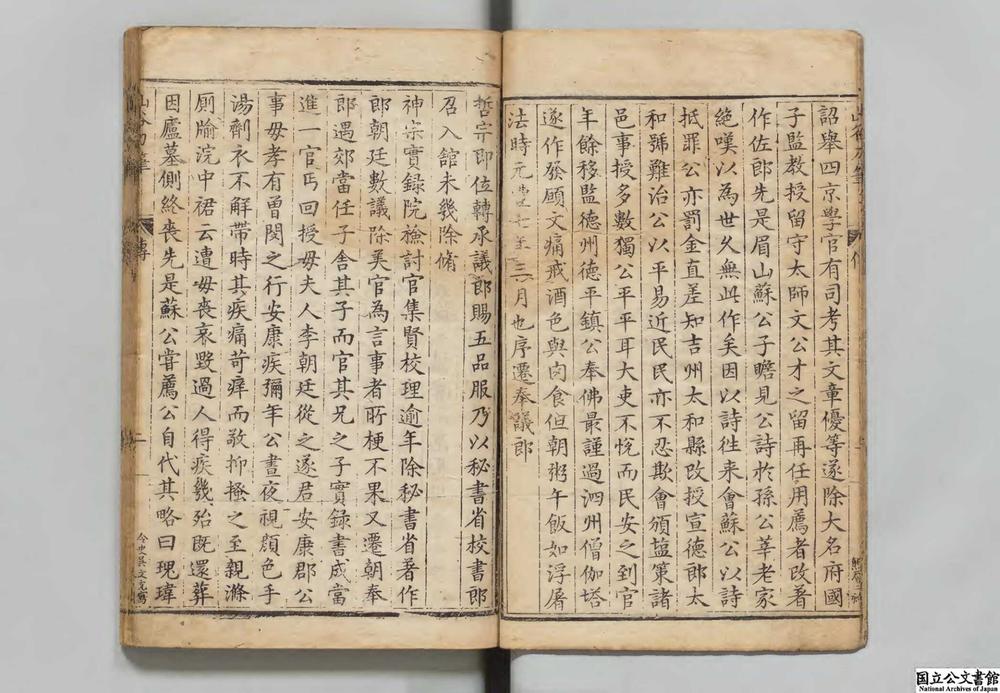 詔舉四京學官有司考其文章優等遂除大名府國
子監教授留守太師文公才之留再任用薦者改著
作佐郎先是眉山蘇公子瞻見公詩於孫公莘老家
絶嘆以為世久無此作矣因以詩徃来會蘇公以詩
抵罪公亦罰金直差知吉州太和縣改授宣德郎太
和號難治公以平易近民民亦不忍欺會頒塩策諸
邑事授多數獨公平平耳大吏不悅而民安之到官
年餘移監德州德平鎮公奉佛最謹過泗州僧伽塔
遂作發願文痛戒酒色與肉食但朝粥午飯如浮屠
法時元豊七年三月也序遷奉議郎
哲宗即位轉承議郎賜五品服乃以秘書省校書郎
召入舘未幾除脩
神宗實録院撿討官集賢校理逾年除秘書省著作
郎朝廷數議除美官為言事者所梗不果又遷朝奉
郎遇郊當任子舍其子而官其兄之子實録書成當
進一官丐回授毋夫人李朝廷從之遂君安康郡公
事毋孝有曾閔之行安康疾彌年公晝夜視顔色手
湯劑衣不解帶時其疾痛苛痒而敬抑搔之至親滌
厠牏浣中裙云遭毋喪哀毀過人得疾幾殆旣還葬
因廬墓側終喪先是蘇公嘗薦公自代其略曰瓌瑋
傳
国立公文書館
National Archives of Japan